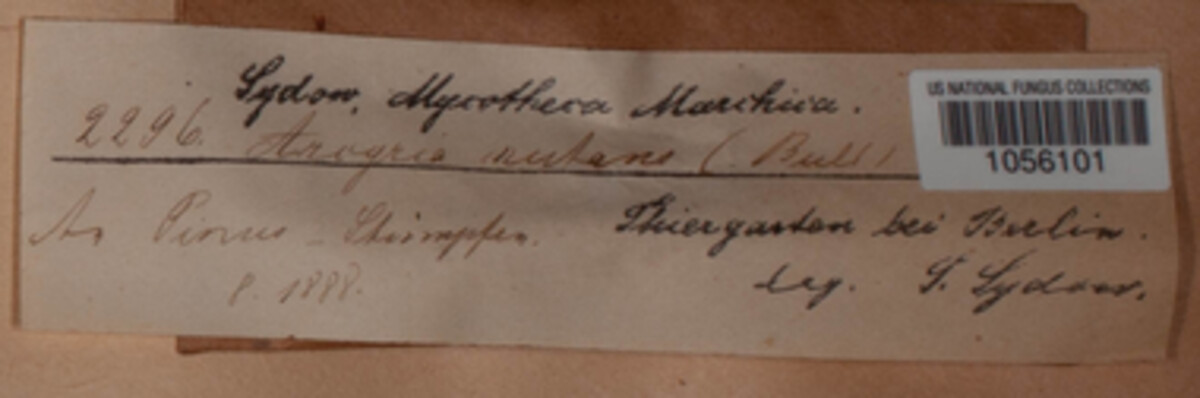 Sydow, Mycotheca Marchica.
US NATIONAL FUNGUS COLLECTIONS
1056101
2296. nutans (Bull)
An Pinus - Stümpfen. Thiergarten bei Berlin.
8. 1888. leg. P. Sydow.